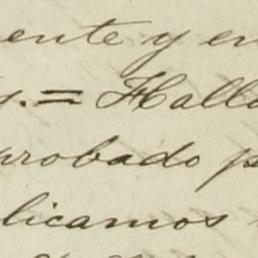 ente y en
s. = Hallo
probado p
licamos